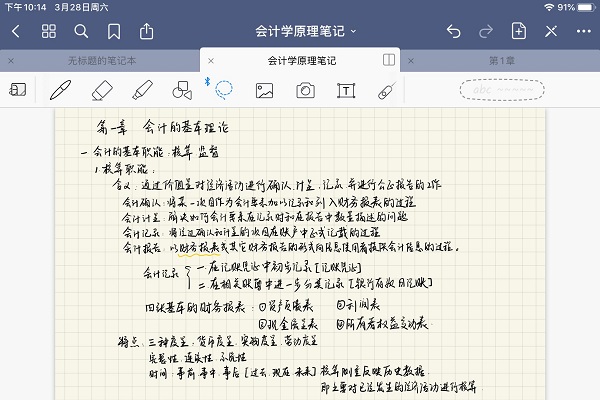 下午10:14 3月28日周六 91%
会计学原理笔记
无标题的笔记本 会计学原理笔记 第1章
abc
第一章 会计的基本理论
一 会计的基本职能：核算 监督
1.核算职能：
含义：通过价值量对经济活动进行确认、计量、记录，并进行公正报告的工作
会计确认：将某一项目作为会计要素加以记录和列入财务报表的过程
会计计量：解决如何会计要素在记录时和在报告中数量描述的问题
会计记录：将经过确认和计量的项目在账户中正式记载的过程
会计报告：以财务报表或其它财务报告的形式向信息使用者提供会计信息的过程。
会计记录
一 在记账凭证中初步记录［记账凭证］
二 在相关账簿中进一步分类记录［银行存款日记账］
四张基本的财务报表：①资产负债表 ②利润表
③现金流量表 ④所有者权益变动表
特点：三种度量：货币度量、实物度量、劳动度量
完整性、连续性、系统性
时间：事前、事中、事后［过去、现在、未来］核算侧重反映历史数据，
即主要对已经发生的经济活动进行核算